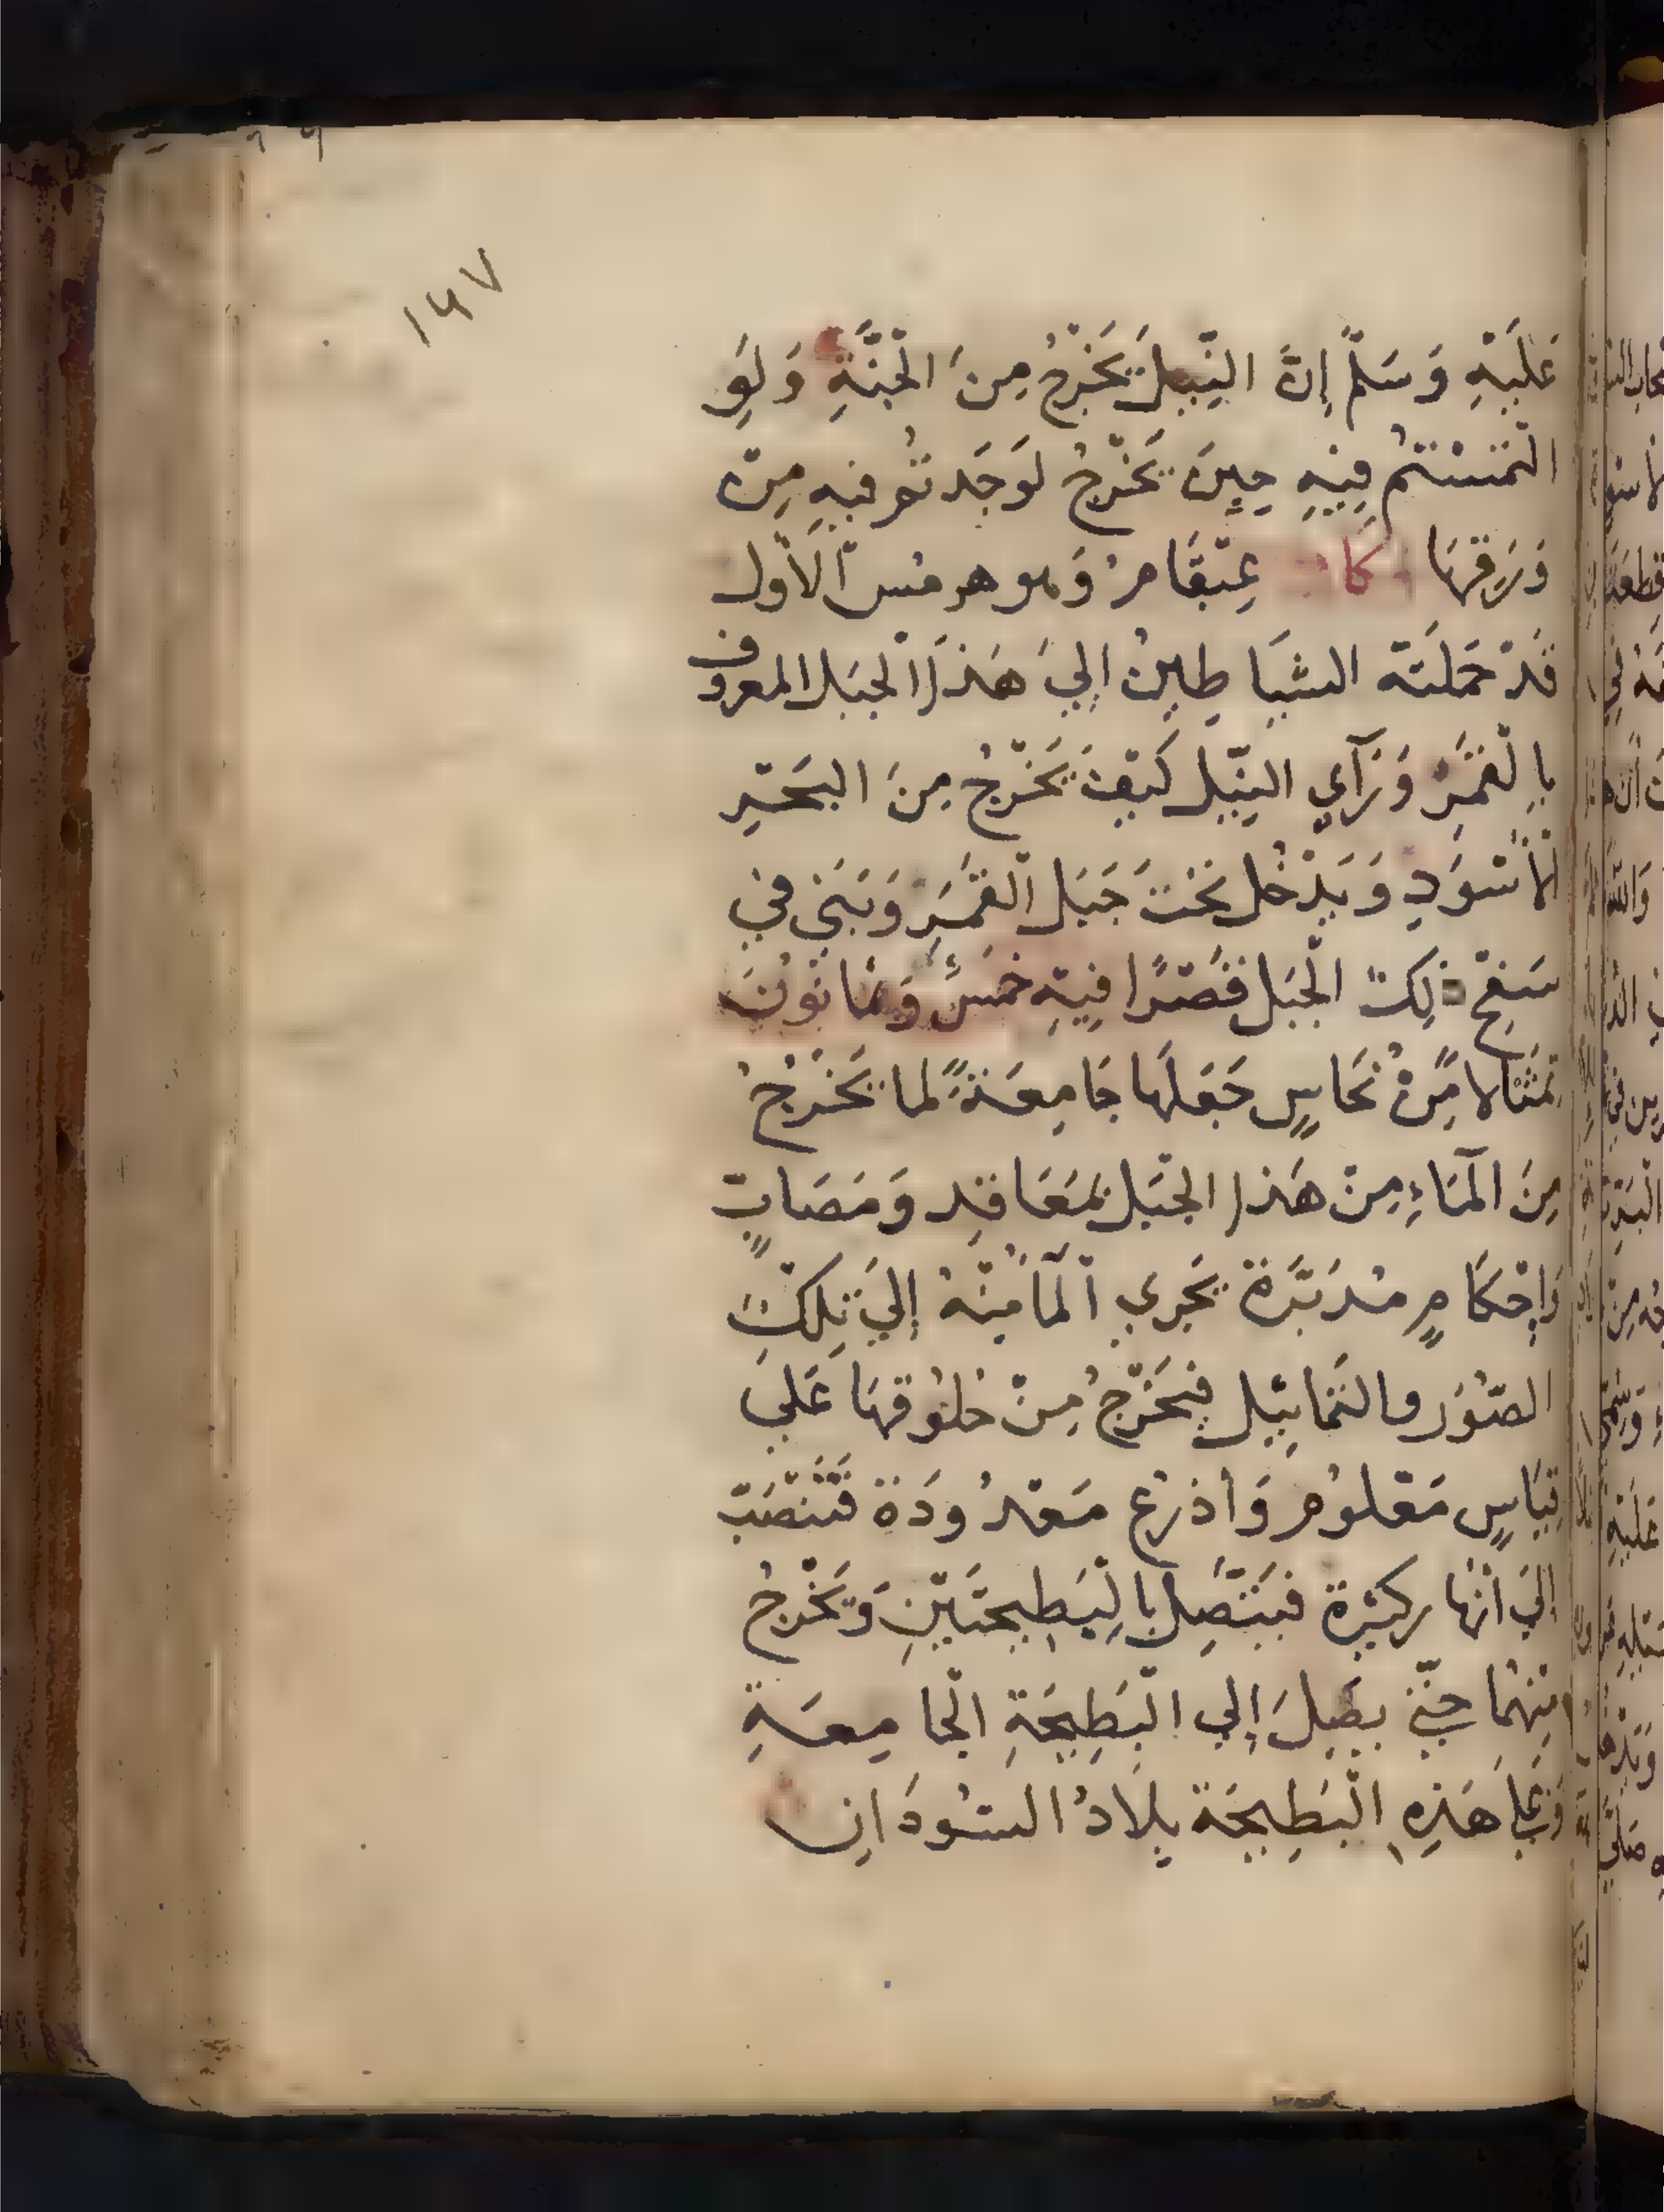 ١٤٧
عَلَيْهِ وَسَلَّم إِنَّ النِّيلَ يَخْرُجُ مِنَ الْجَنَّةِ وَلَوِ
الْتَمَسْتُم فِيْهِ حِينَ يَخْرُجُ لَوَجَدتُم فيهِ مِنْ
وَرَقِهَا وَكَانَ عِيْقَامُ وَهو هرمس الاَوّل
قَدْ حَمَلَتْهُ الشَيَاطِينُ إِلَي هَذَا الْجَبَل المعروف
بِالْقَمَرِ وَرَآي النِّيْل كَيْفَ يَخْرُجُ مِنَ البَحْرِ
الْأَسْوَدِ وَيَدْخُل تَحْتَ جَبَل الْقَمَرِ وَبَنَي في
سَفْحِ ذلِكَ الْجَبَل قَصْرًا فِيْهِ خَمْسٌ وَثمَانُوْنَ
تِمْثَالا مِّنْ نُحَاسٍ جَعَلَهَا جَامِعَةً لما يَخْرُجُ
مِنَ الْمَاءِ مِنْ هَذا الجَبَل بمَعَاقِد وَمَصَابٍّ
وَإِحْكَامٍ مُدَبَّرَة يَجْرِي الْمَا مِنْهُ إِلَي تِلْكَ
الصّوَر والتَمَاثِيْل فيَخْرُجُ مِنْ حُلُوقهَا عَلَي
قِيَاسٍ مَعْلُومٍ وَأذرُع مَعْدُودَة فَتَنْصَبّ
اِلَي اَنْهَار كثيْرة فَيَتَّصِل بِالْبَطِيحَتَيْنِ وَيَخْرُجُ
مِنْهُمَا حَتّي يَصِلَ إِلَي الْبَطِيْحَةِ الْجَامِعَةِ
وَعَلَي هَذِهِ الْبَطِيحَة بِلَادُ السُّودَان